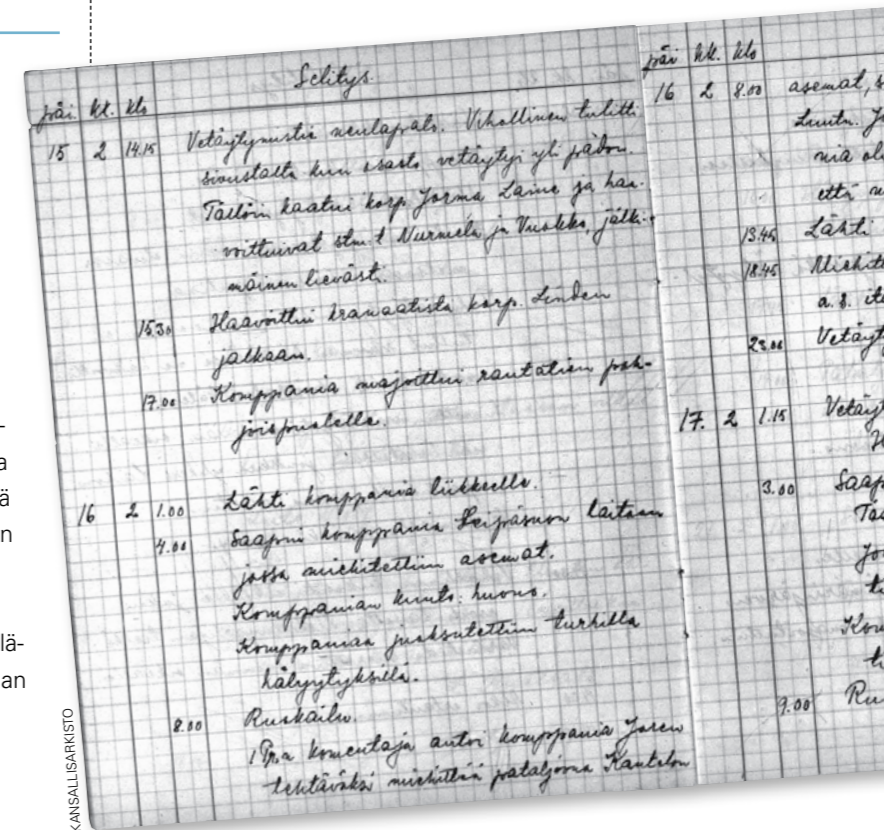 päi. kk. klo Selitys.
15 2 14.15 Vetäytymistie neulapalo. Vihollinen tulitti
sivustalta kun osasto vetäytyi yli
Tällöin kaatui korp. Jorma Laine ja haa-
voittuivat stm:t Nurmela ja Vuokko, jälki-
mäinen lievästi.
15.30 Haavoittui kranaatista korp. Linden
jalkaan.
17.00 Komppania majoittui rautatien poh-
joispuolelle.
16 2 1.00 Lähti komppania liikkeelle.
4.00 Saapui komppania Leipäsuon laitaan
jossa miehitettiin asemat.
Komppanian kunto: huono.
Komppaniaa juoksutettiin turhilla
hälyytyksillä.
8.00 Ruokailu.
1 Pr.n komentaja antoi komppania
tehtäväksi miehittää pataljoona
päi kk. klo
16 2 8.00 asemat, s
Luutn. J
nia ol
että
13.45 Lähti
18.45 Miehit
a.s. it
23.00 Vetäyt
17. 2 1.15 Vetäyt
3.00 Saap
Täl
Jo
Kom
9.00 Ru
-
a
ä
n
lä-
an
KANSALLISARKISTO